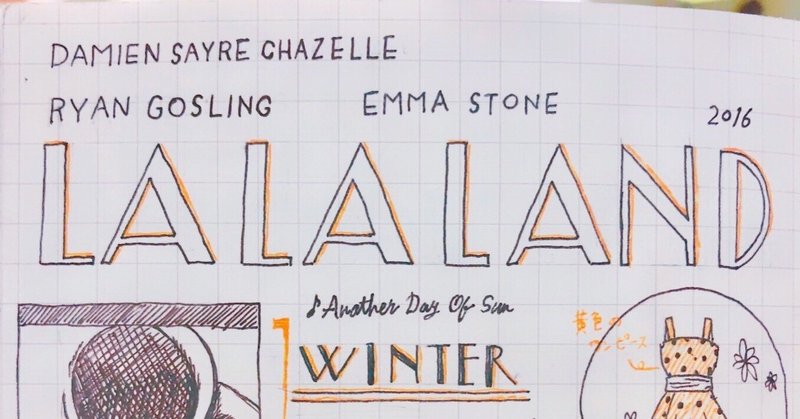 DAMIEN SAYRE CHAZELLE
RYAN GOSLING EMMA STONE 2016
LA LA LAND
♪Another Day Of Sun
WINTER
黄色の
ワンピース